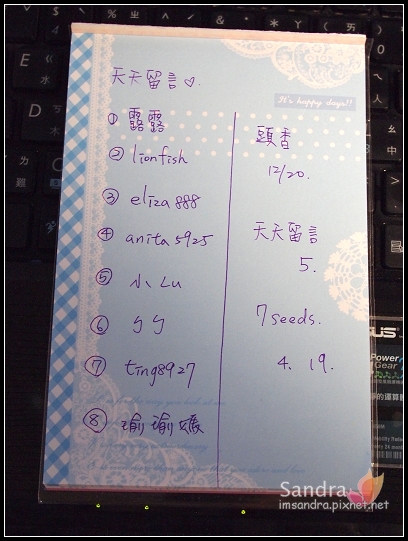 天天留言♡.
① 露露
② lionfish
③ eliza888
④ anita5925
⑤ 小Lu
⑥ ㄅㄅ
⑦ ting8927
⑧ 瑜瑜媽
It's happy days!!
頭香
12/20.
天天留言
5.
7seeds.
4. 19.
Sandra
imsandra.pixnet.net
Power
Gear